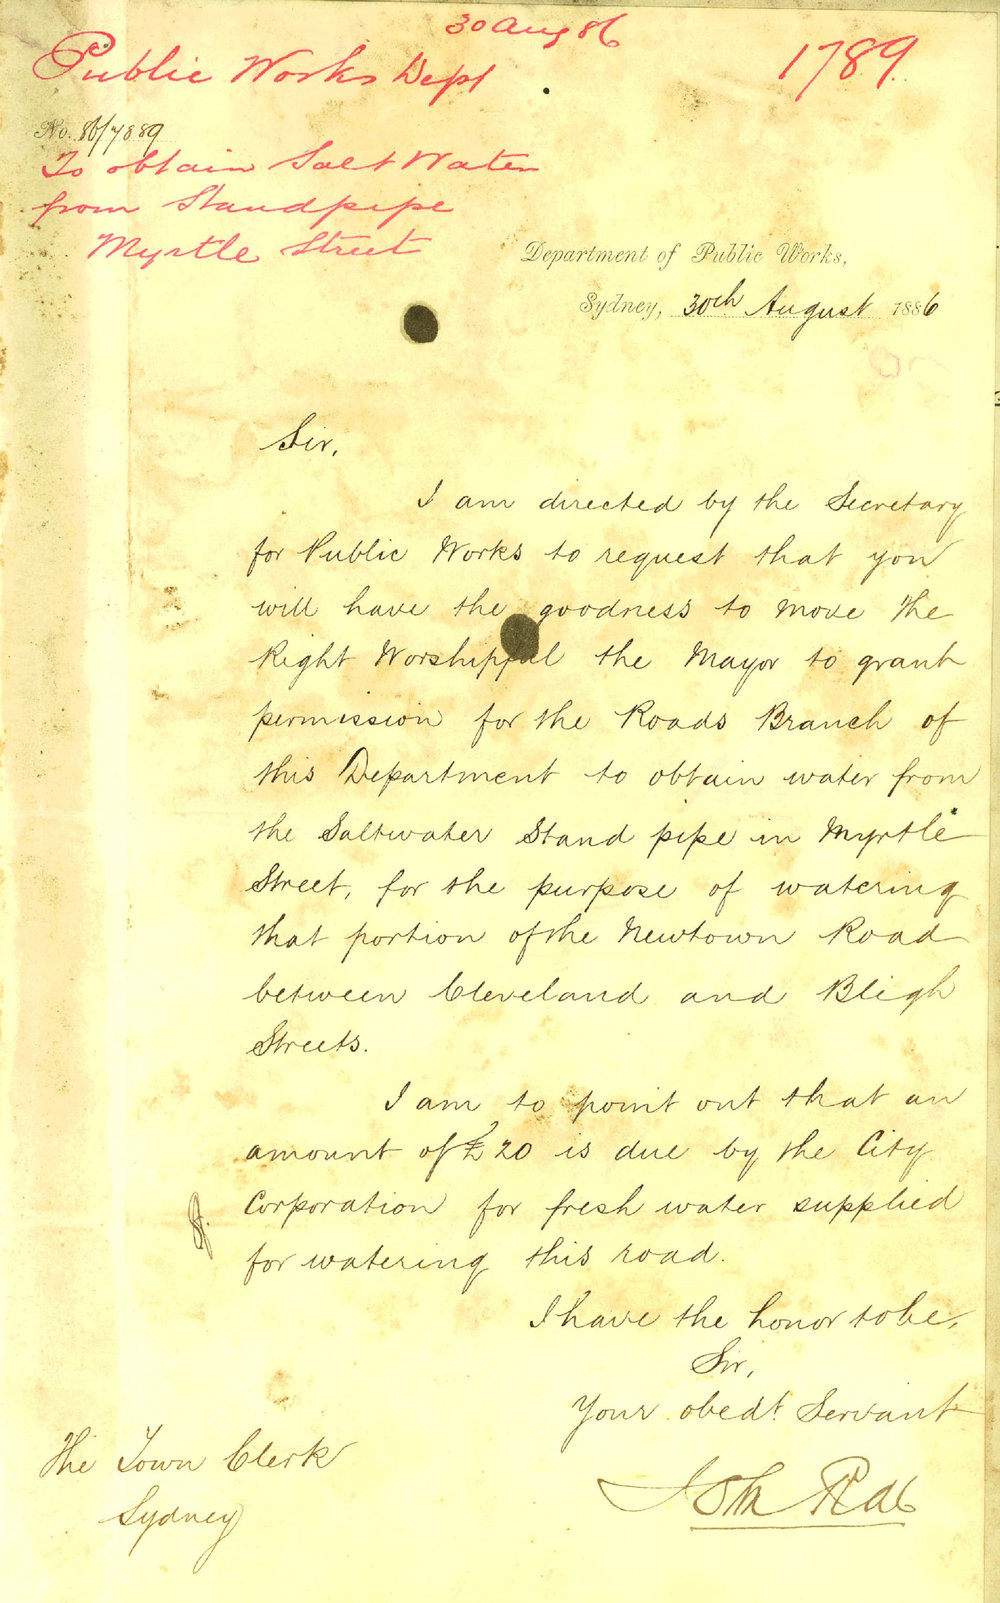 30 Aug 86
Public Works Dept
1789
No. 86/7889
To obtain Salt Water
from Standpipe
Myrtle Street
Department of Public Works,
Sydney, 30th August 1886
Sir,
I am directed by the Secretary
for Public Works to request that you
will have the goodness to move the
Right Worshipful the Mayor to grant
permission for the Roads Branch of
this Department to obtain water from
the Saltwater Stand pipe in Myrtle
Street, for the purpose of watering
that portion of the Newtown Road
between Cleveland and Bligh
Streets.
I am to point out that an
amount of £20 is due by the City
Corporation for fresh water supplied
for watering this road.
I have the honor to be,
Sir,
Your obedt. Servant
John Rae
The Town Clerk
Sydney